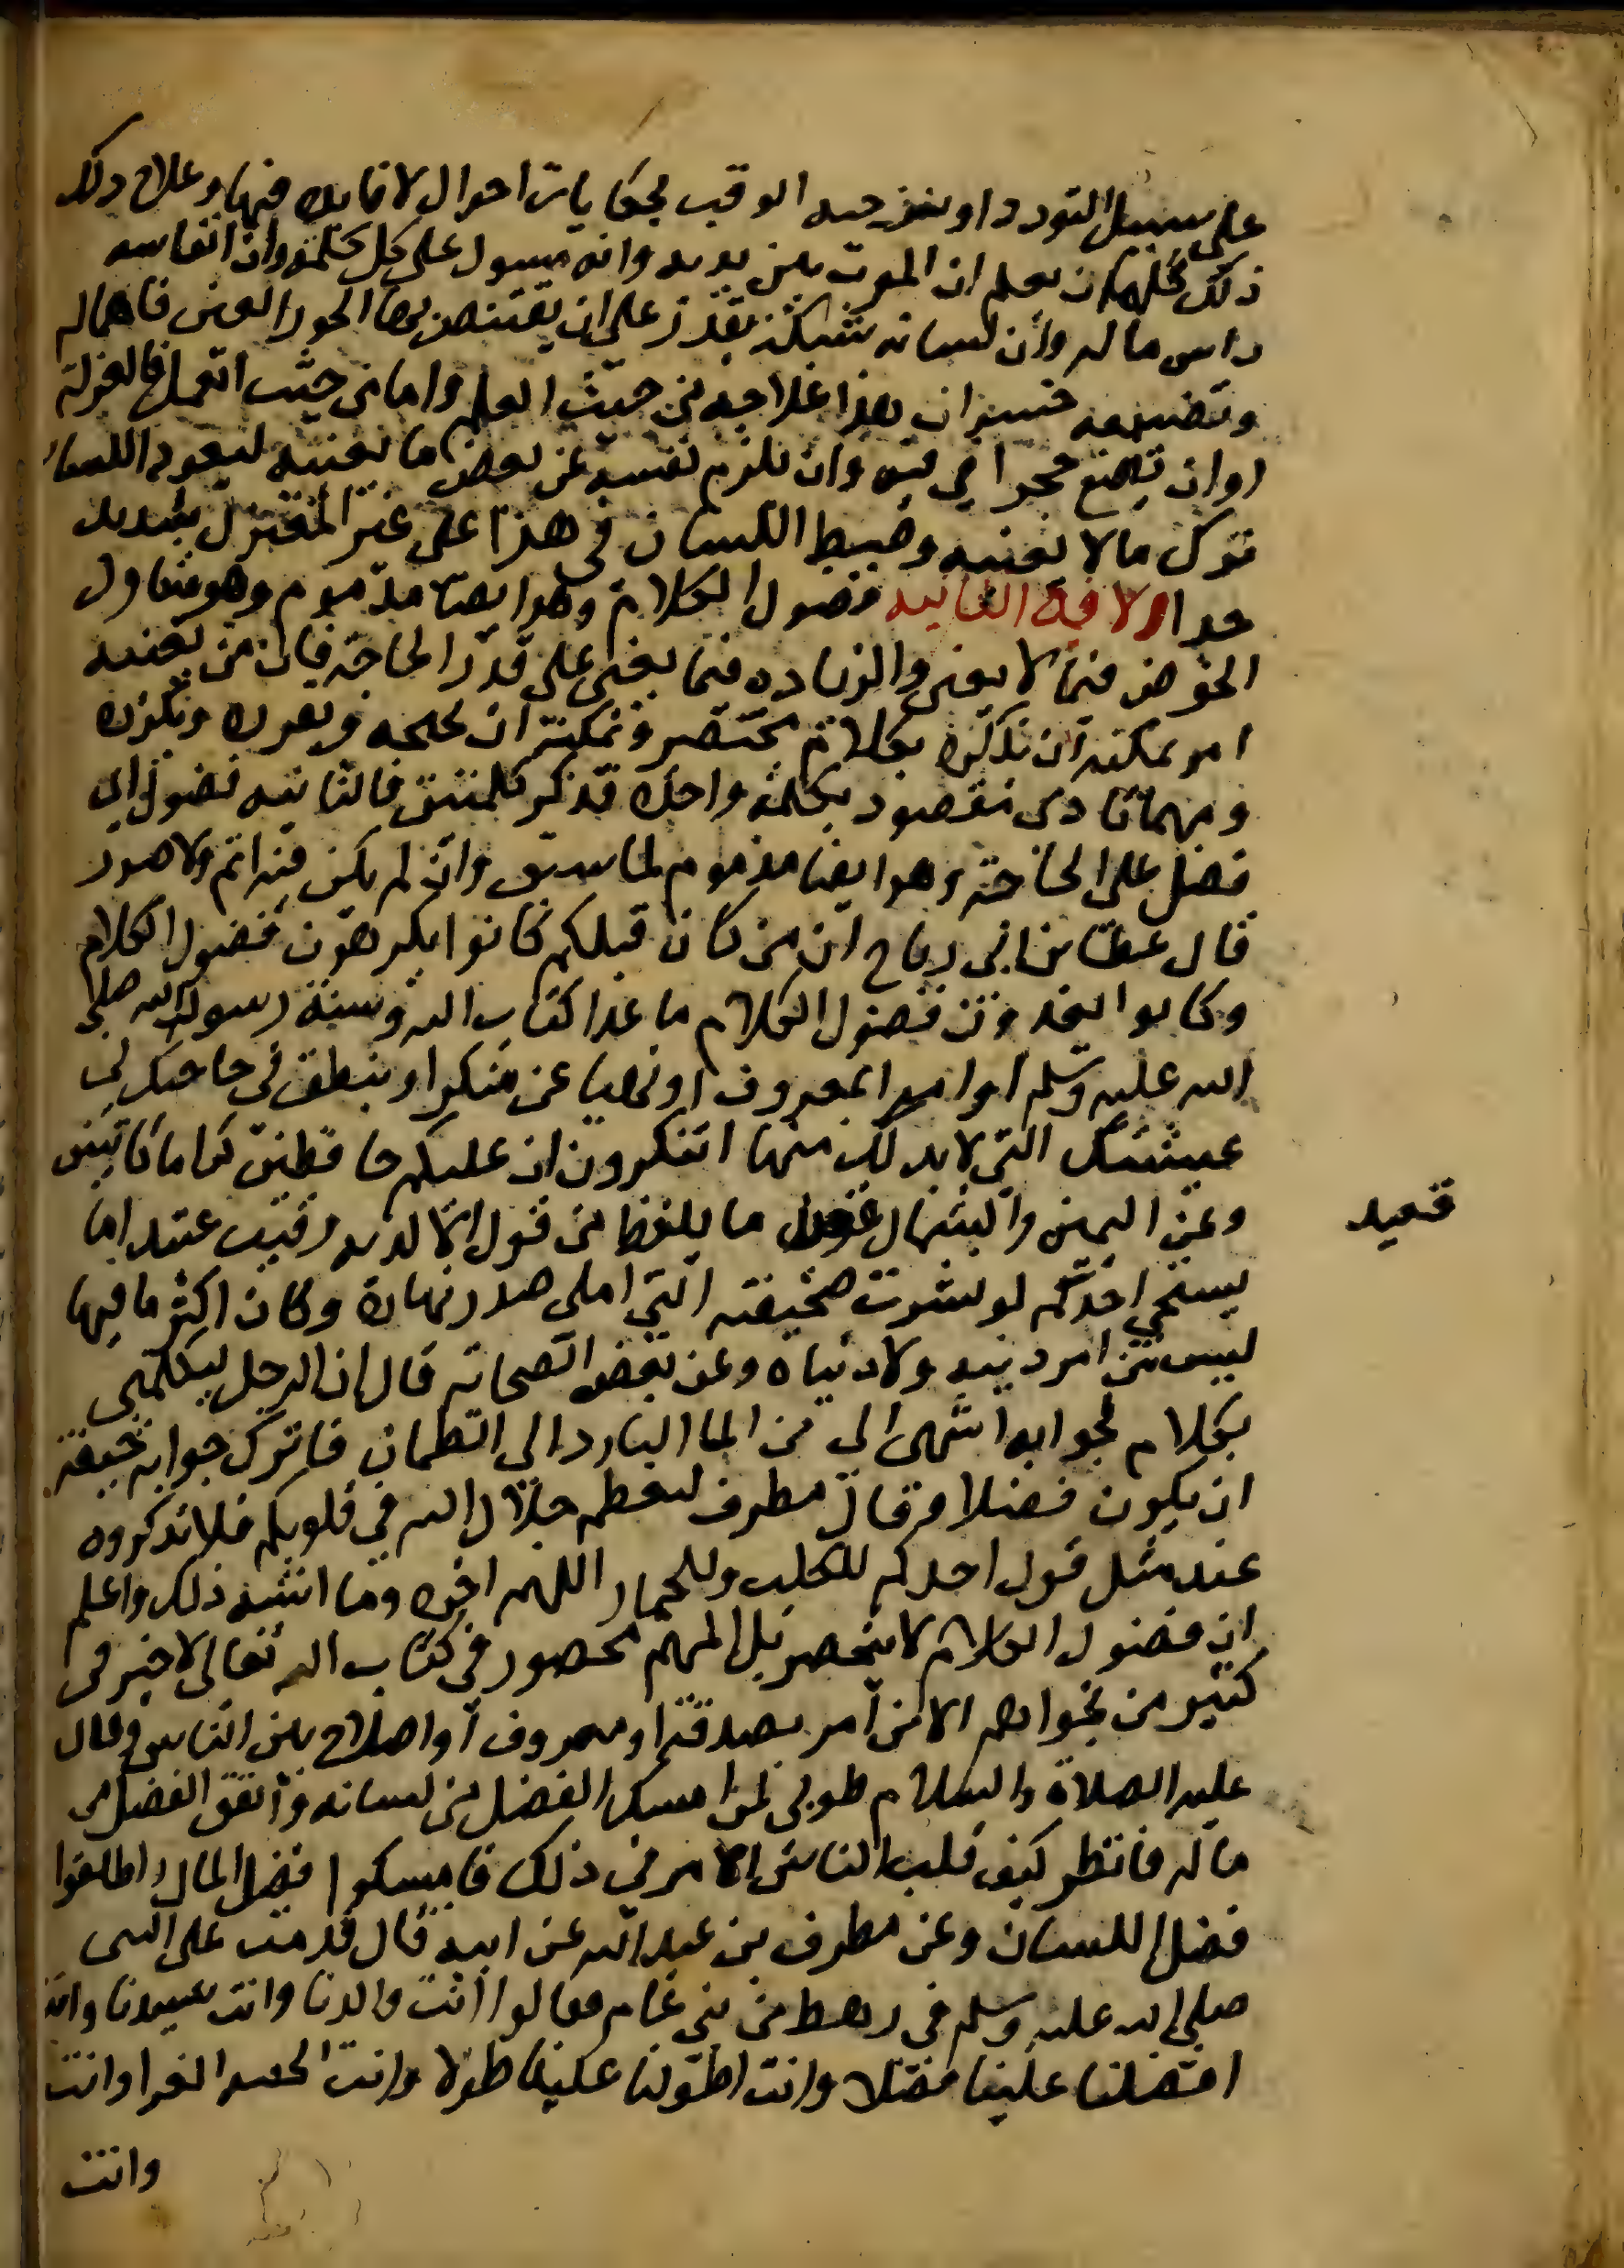 على سبيل التودد او تزجيه الوقت بحكايات احوال لا فايدة فيها وعلاج ذلك
ذلك كله ان يعلم ان الموت بين يديه وانه مسول على كل كلمة وان انفاسه
راس ماله وان لسانه شبكة يقدر على ان يقتنص بها الحور العين فاهماله
وتضييعه خسران هذا علاجه من حيث العلم واما من حيث العمل فالعزلة
او ان يضع حجرا في فيه وان يلزم نفسه عن بعض ما يعنيه ليعود اللسان
ترك ما لا يعنيه وضبط اللسان في هذا على غير المعتزل شديد
جدا الافة الثانية فضول الكلام وهو ايضا مذموم وهو يتناول
الخوض فيما لا يعني والزياده فيما يعني على قدر الحاجة فان من يعنيه
امر يمكنه ان يذكره بكلام مختصر ويمكنه ان يجسمه ويقرره ويكرره
ومهما تادى مقصود بكلمة واحدة فذكر كلمتين فالثانيه فضول اي
فضل على الحاجة وهو ايضا مذموم لما سبق وان لم يكن فيه اثم ولا ضرر
قال عطا بن ابي رباح ان من كان قبلكم كانوا يكرهون فضول الكلام
وكانوا يعدون فضول الكلام ما عدا كتاب الله وسنة رسول الله صلى
الله عليه وسلم او امرا بمعروف او نهيا عن منكر او ينطق في حاجتك في
عيشتك التي لا بد لك منها اتنكرون ان عليكم حافظين كراما كاتبين
وعن اليمين والشمال قعيد ما يلفظ من قول الا لديه رقيب عتيد اما
يستحي احدكم لو نشرت صحيفته التي املى صدر نهاره وكان اكثر ما فيها
ليس من امر دينه ولا دنياه وعن بعض الصحابة قال ان الرجل ليكلمني
بكلام لجوابه اشهى الي من الما البارد الى الظمان فاترك جوابه خيفة
ان يكون فضلا وقال مطرف ليعظم جلال الله في قلوبكم فلا تذكروه
عند مثل قول احدكم للكلب وللحمار اللهم اخزه وما اشبه ذلك واعلم
ان فضول الكلام لا ينحصر بل المهم محصور في كتاب الله تعالى لا خير في
كثير من نجواهم الا من امر بصدقة او معروف او اصلاح بين الناس وقال
عليه الصلاة والسلام طوبى لمن امسك الفضل من لسانه وانفق الفضل من
ماله فانظر كيف قلب الناس الامر في ذلك فامسكوا فضل المال واطلقوا
فضل اللسان وعن مطرف بن عبد الله عن ابيه قال قدمت على النبي
صلى الله عليه وسلم في رهط من بني عامر فقالوا انت والدنا وانت سيدنا وانت
افضلنا علينا فضلا وانت اطولنا علينا طولا وانت الجفنة الغرا وانت
وانت
قعيد